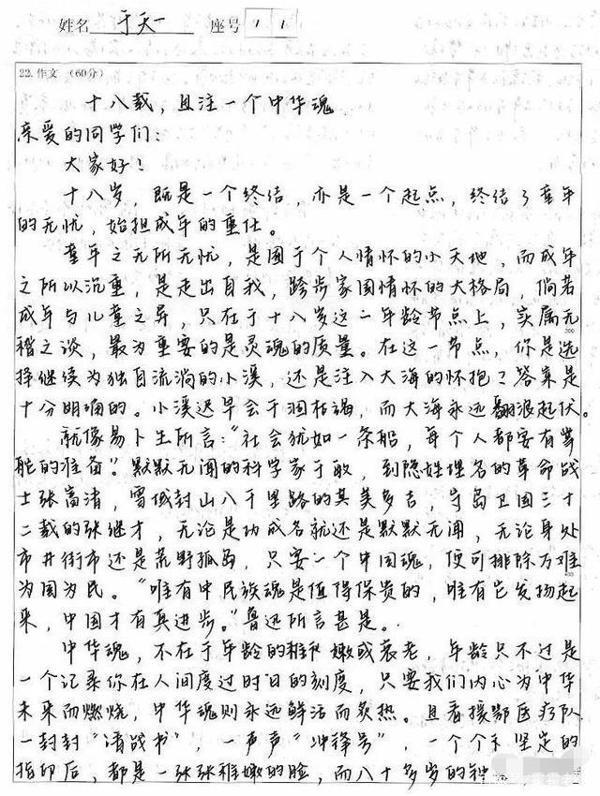 姓名 于天一 座号 1 1
22.作文 (60分)
十八载，且注一个中华魂
亲爱的同学们：
大家好！
十八岁，既是一个终结，亦是一个起点，终结了童年
的无忧，始担成年的重任。
童年之无所无忧，是囿于个人情怀的小天地，而成年
之所以沉重，是走出自我，跨步家国情怀的大格局，倘若
成年与儿童之异，只在于十八岁这一年龄节点上，实属无
稽之谈，最为重要的是灵魂的质量。在这一节点，你是选
择继续为独自流淌的小溪，还是注入大海的怀抱？答案是
十分明确的。小溪迟早会干涸枯竭，而大海永远翻浪起伏。
就像易卜生所言："社会犹如一条船，每个人都要有掌
舵的准备"。默默无闻的科学家于敏，到隐姓埋名的革命战
士张富清，雪域封山八千里路的其美多吉，守岛卫国三十
二载的张继才，无论是功成名就还是默默无闻，无论身处
市井街市还是荒野孤岛，只要一个中国魂，便可排除万难
为国为民。"唯有中民族魂是值得保贵的，唯有它发扬起
来，中国才有真进步。"鲁迅所言甚是。
中华魂，不在于年龄的稚嫩或衰老，年龄只不过是
一个记录你在人间度过时日的刻度，只要我们内心为中华
未来而燃烧，中华魂则永远鲜活而炙热。且看援鄂医疗队
一封封"请战书"，一声声"冲锋号"，一个个坚定的
指印后，都是一张张稚嫩的脸，而八十多岁的钟